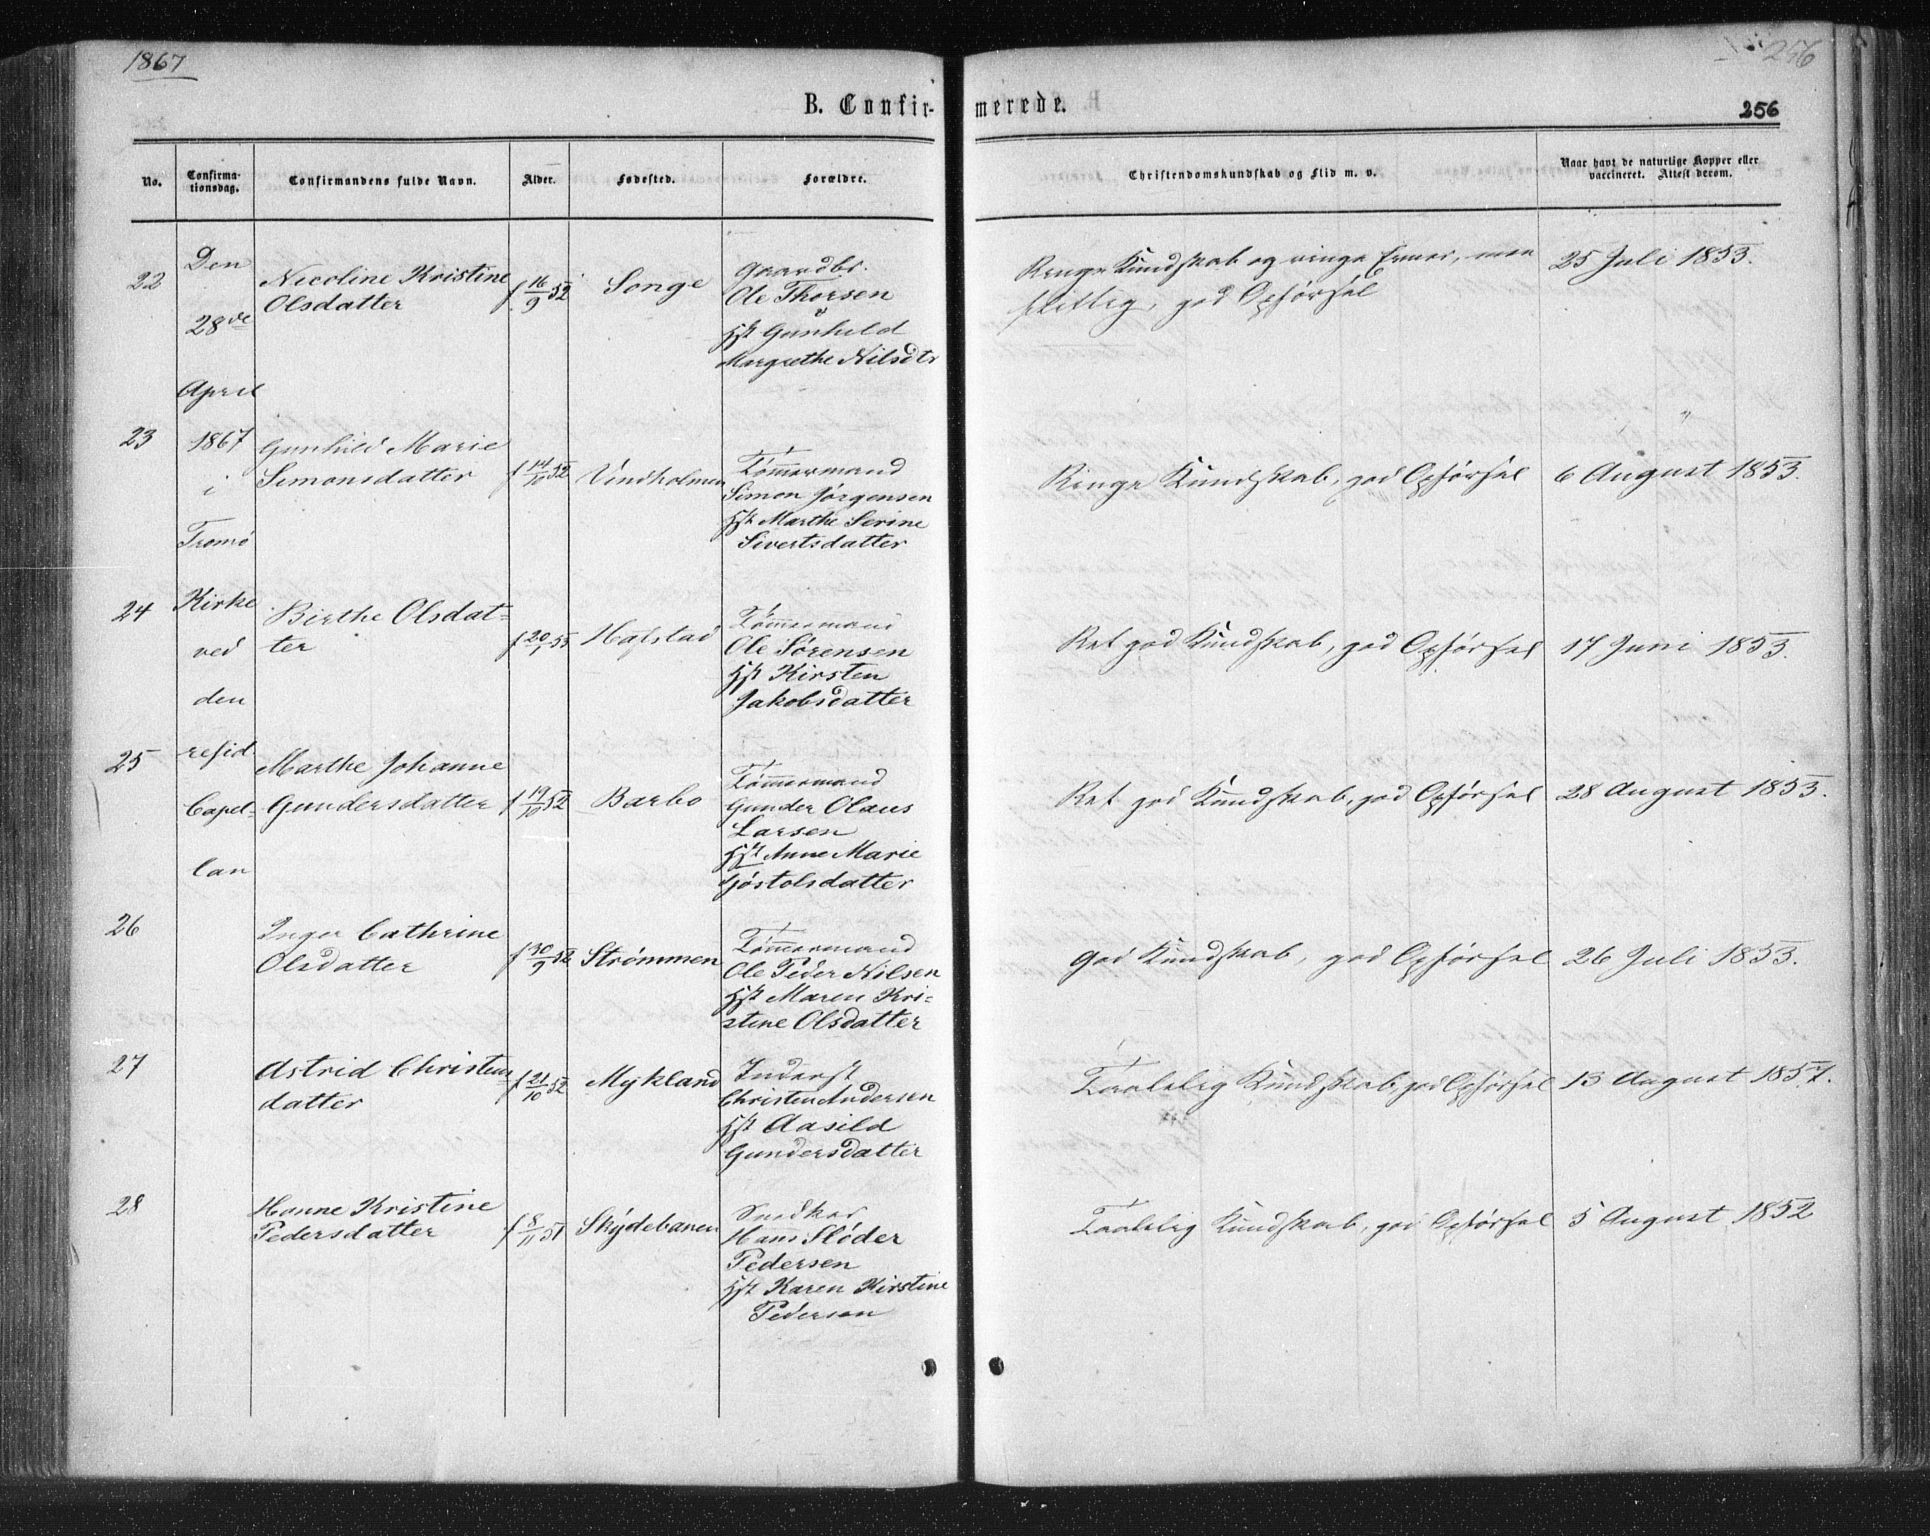 1867
256
B. Confir-
merede.
256
No.
Confirma-
tionsdag.
Confirmandens fulde Navn.
Alder.
Fødested.
Forældre.
Christendomskundskab og Flid m. v.
Naar havt de naturlige Kopper eller
vaccineret. Attest derom.
Den
28de
April
1867
i
Tromø
Kirke
ved
den
resid.
Capel-
lan
22
Nicoline Kristine
Olsdatter
f 16/9 52
Songe
Gaardbr.
Ole Thorsen
&
Hst Gunhild
Margrethe Nilsdtr
Ringe Kundskab og ringe Evner, men
flittig, god Opførsel
25 Juli 1853.
23
Gunhild Marie
Simonsdatter
f 14/10 52
Vindholmen
Tømmermand
Simon Jørgensen
Hst Marthe Serine
Sivertsdatter
Ringe Kundskab, god Opførsel
"
6 August 1853.
24
Birthe Olsdat-
ter
f 20/1 53
Hafstad
Tømmermand
Ole Sørensen
Hst Kirsten
Jakobsdatter
Ret god Kundskab, god Opførsel
17 Juni 1853.
25
Marthe Johanne
Gundersdatter
f 19/10 52
Barbo
Tømmermand
Gunder Olaus
Larsen
Hst Anne Marie
Gjøstolsdatter
Ret god Kundskab, god Opførsel
28 August 1853.
26
Inger Cathrine
Olsdatter
f 30/9 52
Strømmen
Tømmermand
Ole Peder Nilsen
Hst Maren Kri-
stine Olsdatter
God Kundskab, god Opførsel
26 Juli 1853.
27
Astrid Christens
datter
f 21/10 52
Mykland
Inderst
Christen Andersen
Hst Aasild
Gundersdatter
Taalelig Kundskab, god Opførsel
13 August 1857.
28
Hanne Kristine
Pedersdatter
f 8/11 51
Skydebanen
Snedker
Hans Sløder
Pedersen
Hst Karen Kirstine
Pedersen
Taalelig Kundskab, god Opførsel
5 August 1852